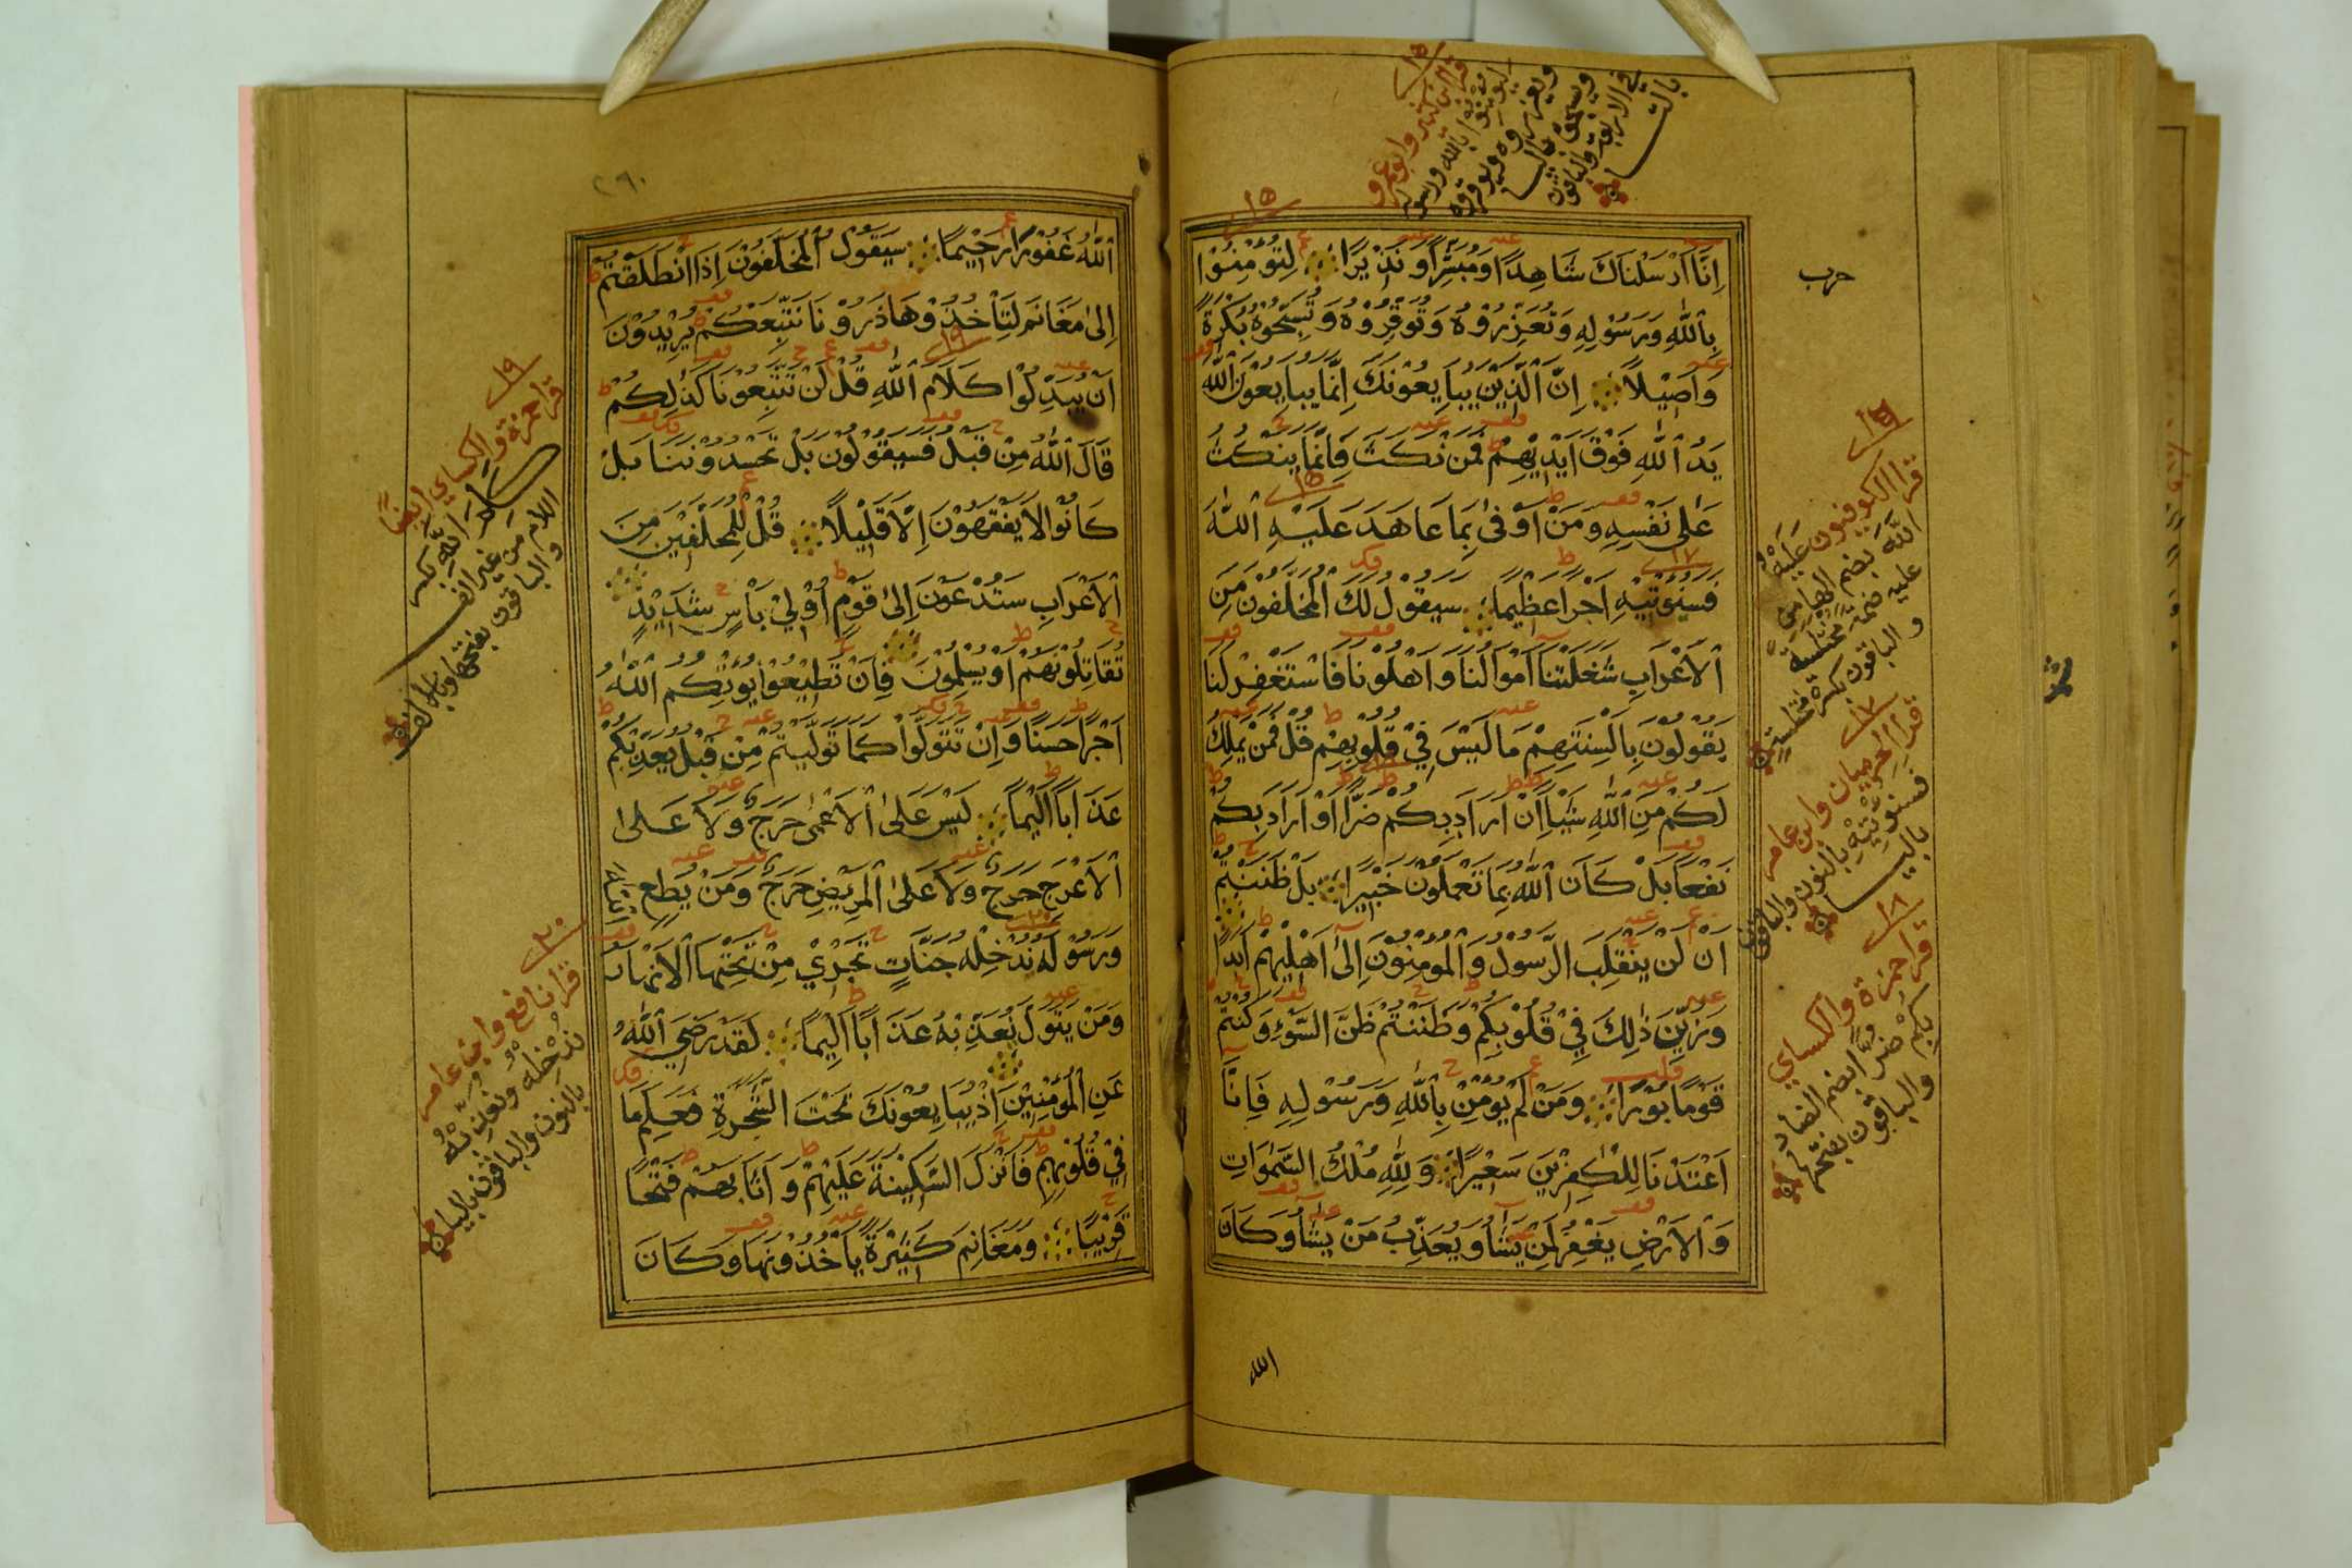 قرا ابن كثير وابو عمرو
ليؤمنوا بالله ورسوله
ويعزروه ويوقروه
ويسبحوه باليا
في الاربعة والباقون
بالتا
١٥
حزب
اِنَّا اَرْسَلْنَاكَ شَاهِدًا وَمُبَشِّرًا وَنَذِيْرًا لِتُؤْمِنُوْا
بِاللّٰهِ وَرَسُوْلِهِ وَتُعَزِّرُوْهُ وَتُوَقِّرُوْهُ وَتُسَبِّحُوْهُ بُكْرَةً
وَاَصِيْلًا اِنَّ الَّذِيْنَ يُبَايِعُوْنَكَ اِنَّمَا يُبَايِعُوْنَ اللّٰهَ
يَدُ اللّٰهِ فَوْقَ اَيْدِيْهِمْ فَمَنْ نَكَثَ فَاِنَّمَا يَنْكُثُ
عَلٰى نَفْسِهِ وَمَنْ اَوْفٰى بِمَا عَاهَدَ عَلَيْهِ اللّٰهَ
فَسَنُؤْتِيْهِ اَجْرًا عَظِيْمًا سَيَقُوْلُ لَكَ الْمُخَلَّفُوْنَ مِنَ
الْاَعْرَابِ شَغَلَتْنَا اَمْوَالُنَا وَاَهْلُوْنَا فَاسْتَغْفِرْ لَنَا
يَقُوْلُوْنَ بِاَلْسِنَتِهِمْ مَا لَيْسَ فِيْ قُلُوْبِهِمْ قُلْ فَمَنْ يَمْلِكُ
لَكُمْ مِنَ اللّٰهِ شَيْاً اِنْ اَرَادَ بِكُمْ ضَرًّا اَوْ اَرَادَ بِكُمْ
نَفْعًا بَلْ كَانَ اللّٰهُ بِمَا تَعْمَلُوْنَ خَبِيْرًا بَلْ ظَنَنْتُمْ
اَنْ لَنْ يَنْقَلِبَ الرَّسُوْلُ وَالْمُؤْمِنُوْنَ اِلٰى اَهْلِيْهِمْ اَبَدًا
وَزُيِّنَ ذٰلِكَ فِيْ قُلُوْبِكُمْ وَظَنَنْتُمْ ظَنَّ السَّوْءِ وَكُنْتُمْ
قَوْمًا بُوْرًا وَمَنْ لَمْ يُؤْمِنْ بِاللّٰهِ وَرَسُوْلِهِ فَاِنَّا
اَعْتَدْنَا لِلْكٰفِرِيْنَ سَعِيْرًا وَلِلّٰهِ مُلْكُ السَّمٰوَاتِ
وَالْاَرْضِ يَغْفِرُ لِمَنْ يَشَآءُ وَيُعَذِّبُ مَنْ يَشَآءُ وَكَانَ
١٦
قرا الكوفيون عليه
الله بضم الها من
عليه
والباقون بكسرة
١٧
قرا الحرميان وابن عامر
فسنؤتيه بالنون والباقون
باليا
١٨
قرا حمزة والكسائي
بكم ضرا بضم الضاد
والباقون بفتحها
الله
٢٩٠
اللّٰهُ غَفُوْرًا رَحِيْمًا سَيَقُوْلُ الْمُخَلَّفُوْنَ اِذَا انْطَلَقْتُمْ
اِلٰى مَغَانِمَ لِتَأْخُذُوْهَا ذَرُوْنَا نَتَّبِعْكُمْ يُرِيْدُوْنَ
اَنْ يُبَدِّلُوْا كَلَامَ اللّٰهِ قُلْ لَنْ تَتَّبِعُوْنَا كَذٰلِكُمْ
قَالَ اللّٰهُ مِنْ قَبْلُ فَسَيَقُوْلُوْنَ بَلْ تَحْسُدُوْنَنَا بَلْ
كَانُوْا لَا يَفْقَهُوْنَ اِلَّا قَلِيْلًا قُلْ لِلْمُخَلَّفِيْنَ مِنَ
الْاَعْرَابِ سَتُدْعَوْنَ اِلٰى قَوْمٍ اُوْلِيْ بَأْسٍ شَدِيْدٍ
تُقَاتِلُوْنَهُمْ اَوْ يُسْلِمُوْنَ فَاِنْ تُطِيْعُوْا يُؤْتِكُمُ اللّٰهُ
اَجْرًا حَسَنًا وَاِنْ تَتَوَلَّوْا كَمَا تَوَلَّيْتُمْ مِنْ قَبْلُ يُعَذِّبْكُمْ
عَذَابًا اَلِيْمًا لَيْسَ عَلَى الْاَعْمٰى حَرَجٌ وَلَا عَلَى
الْاَعْرَجِ حَرَجٌ وَلَا عَلَى الْمَرِيْضِ حَرَجٌ وَمَنْ يُطِعِ اللّٰهَ
وَرَسُوْلَهُ نُدْخِلْهُ جَنَّاتٍ تَجْرِيْ مِنْ تَحْتِهَا الْاَنْهَارُ
وَمَنْ يَتَوَلَّ نُعَذِّبْهُ عَذَابًا اَلِيْمًا لَقَدْ رَضِيَ اللّٰهُ
عَنِ الْمُؤْمِنِيْنَ اِذْ يُبَايِعُوْنَكَ تَحْتَ الشَّجَرَةِ فَعَلِمَ مَا
فِيْ قُلُوْبِهِمْ فَاَنْزَلَ السَّكِيْنَةَ عَلَيْهِمْ وَاَثَابَهُمْ فَتْحًا
قَرِيْبًا وَمَغَانِمَ كَثِيْرَةً يَأْخُذُوْنَهَا وَكَانَ
١٩
قرا حمزة والكسائي ايضا
كلم الله بكسر
اللام من غير الف
والباقون بفتحها وبالف
٢٠
قرا نافع وابن عامر
ندخله ونعذبه
بالنون والباقون باليا